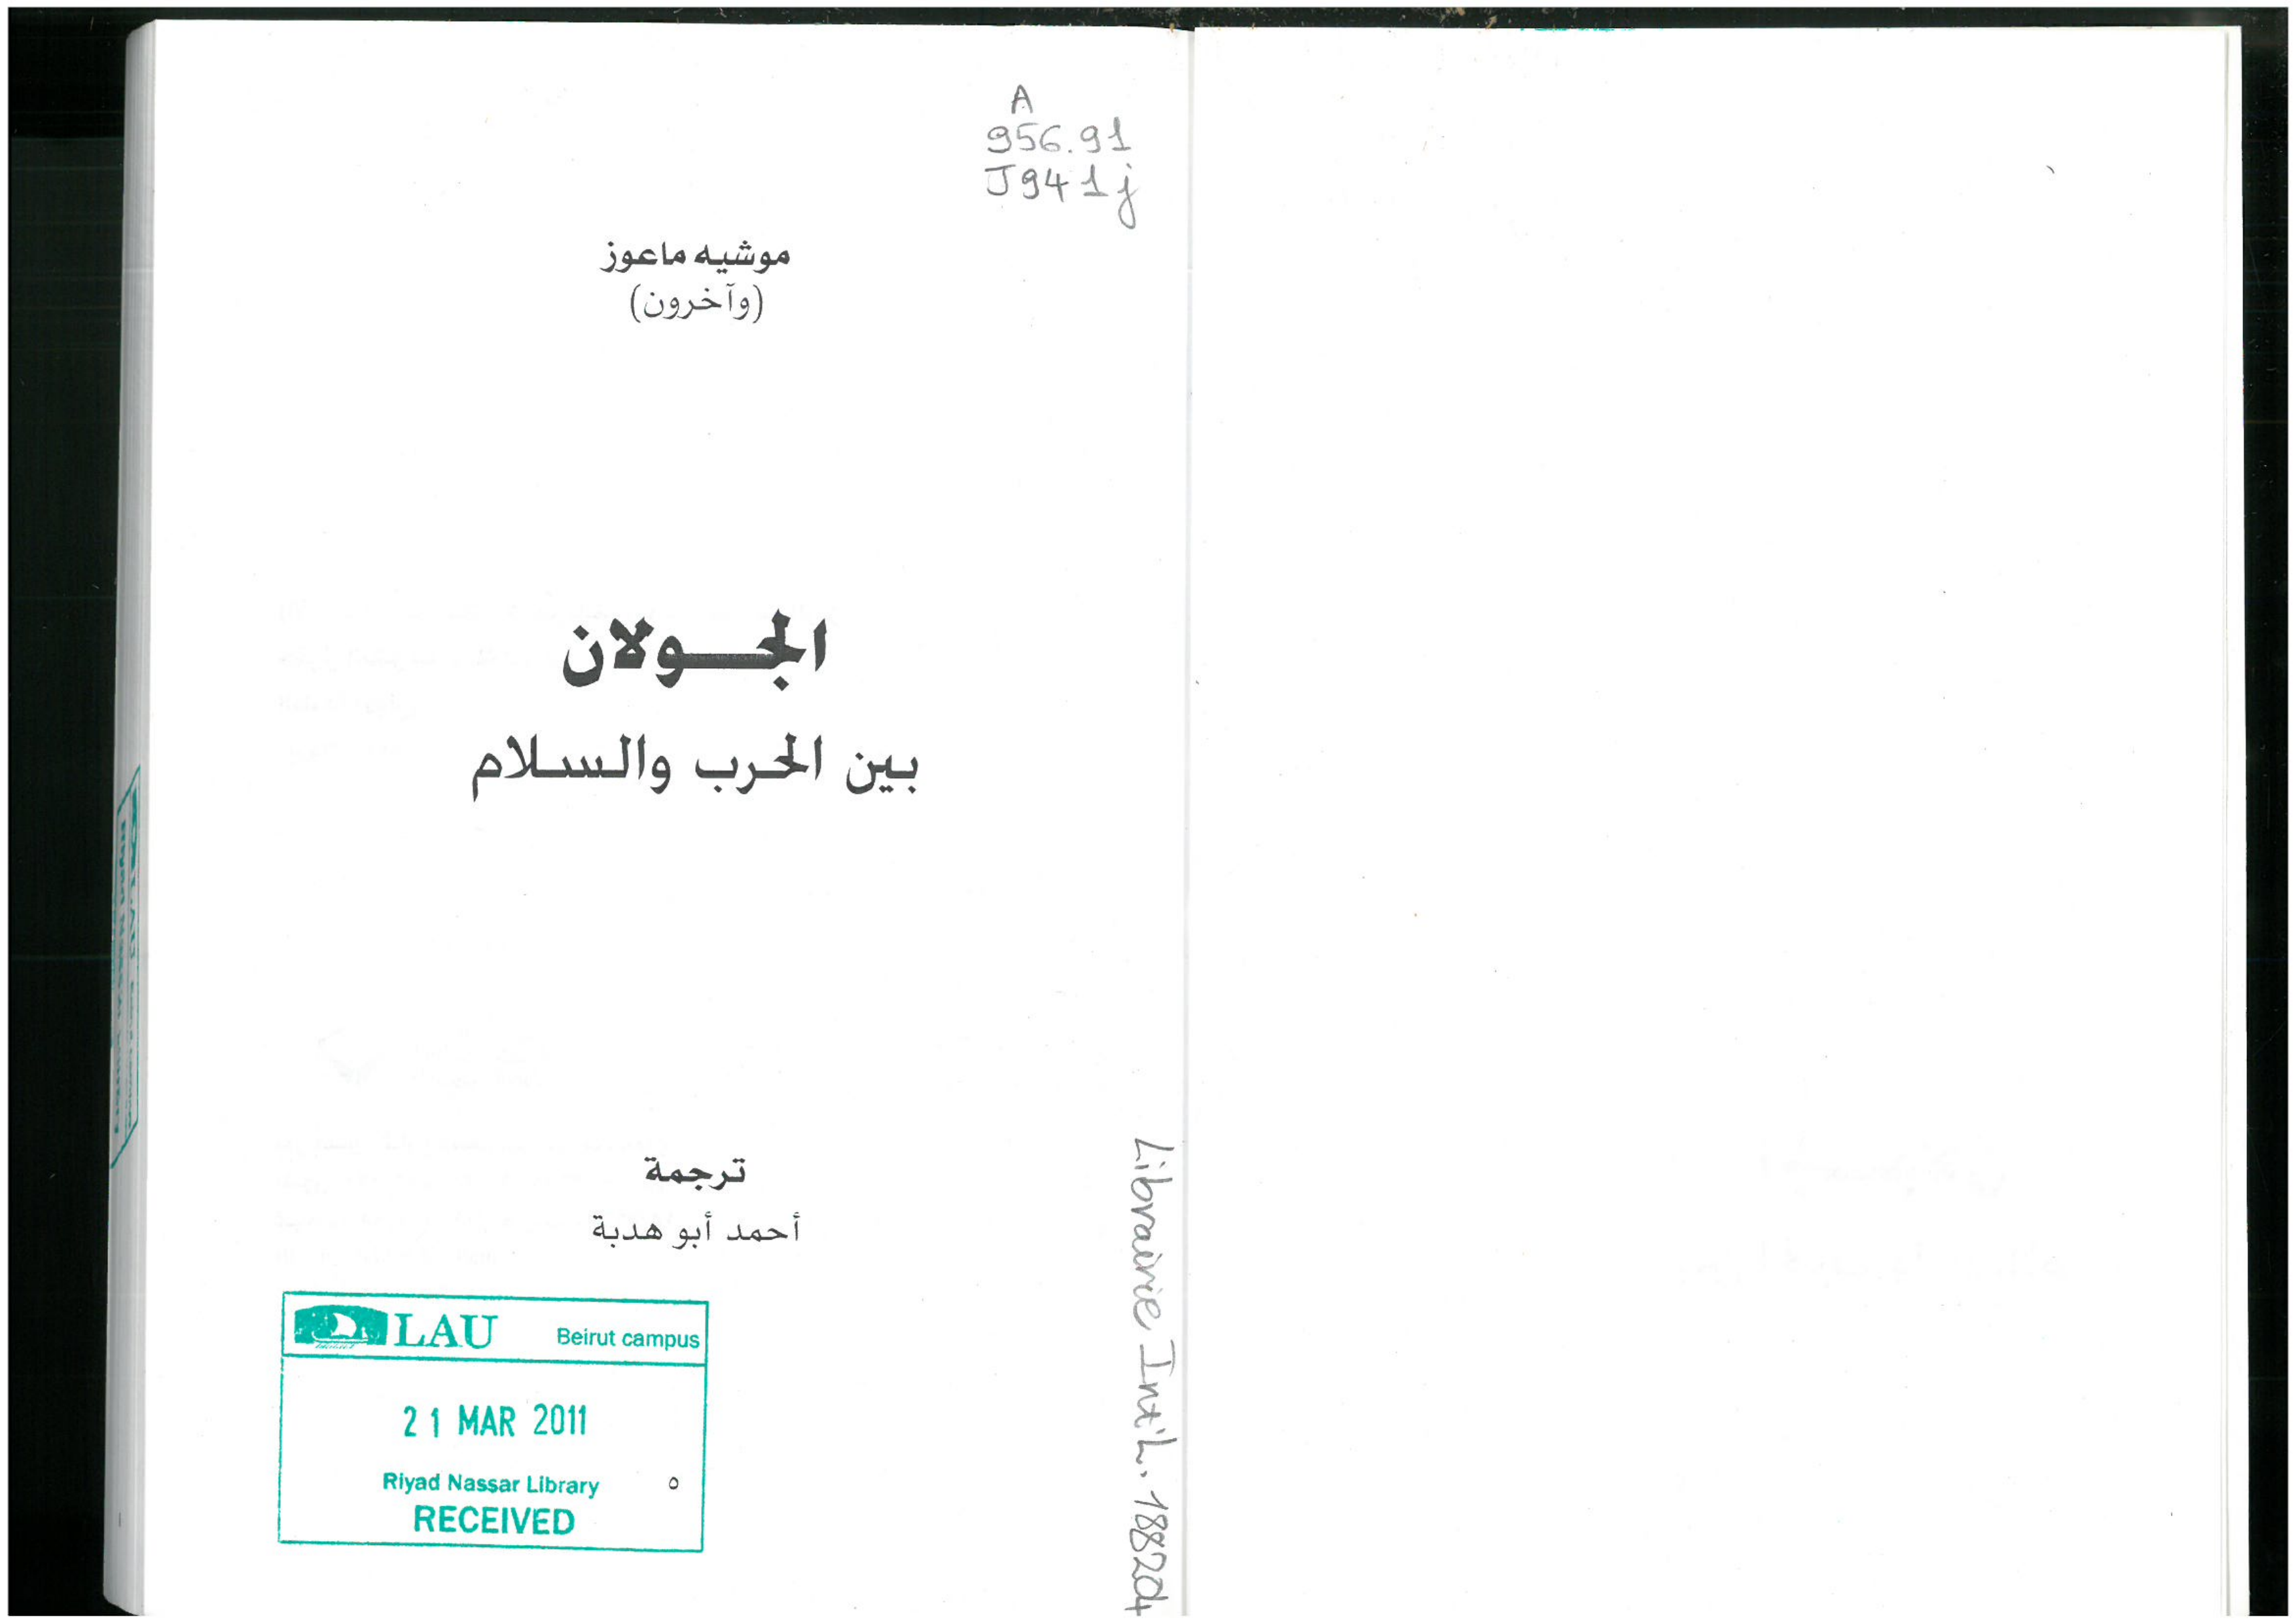 A
956.91
J941j
موشيه ماعوز
(وآخرون)
الجولان
بين الحرب والسلام
ترجمة
أحمد أبو هدبة
LAU Beirut campus
21 MAR 2011
Riyad Nassar Library
RECEIVED
٥
Librairie Int'l. 188204